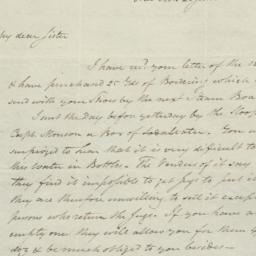 My dear Sister
I have recd. your letter of the 12
& have purchased 25 Yds of Bordering which I
send with your Shoes by the next Steam Boa
I sent the day before yesterday by the Sloop
Capt. Monson a Box of Sodawater. You w
surprized to hear that it is very difficult to
this water in Bottles. The Venders of it say
they find it impossible to get jugs to put it
they are therefore unwilling to sell it except
persons who return the jugs. If you have a
empty ones they will allow you for them
doz & be much obliged to you besides—